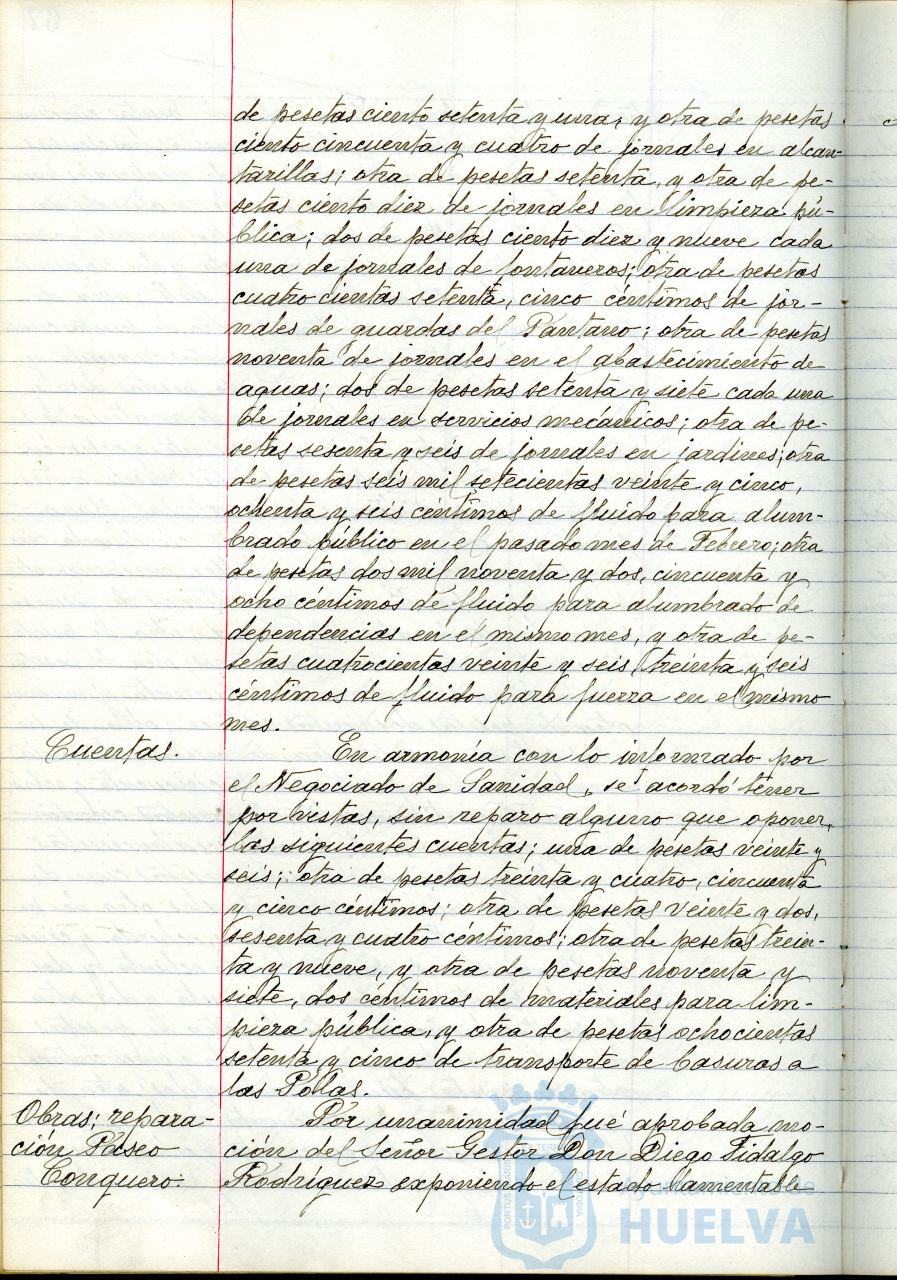 de pesetas ciento setenta y una, y otra de pesetas
ciento cincuenta y cuatro de jornales en alcan-
tarillas; otra de pesetas setenta, y otra de pe-
setas ciento diez de jornales en limpieza pú-
blica; dos de pesetas ciento diez y nueve cada
una de jornales de fontaneros; otra de pesetas
cuatrocientas setenta, cinco céntimos de jor-
nales de guardas del Pantano; otra de pesetas
noventa de jornales en el abastecimiento de
aguas; dos de pesetas setenta y siete cada una
de jornales en servicios mecánicos; otra de pe-
setas sesenta y seis de jornales en jardines; otra
de pesetas seis mil setecientas veinte y cinco,
ochenta y seis céntimos de fluido para alum-
brado público en el pasado mes de Febrero; otra
de pesetas dos mil noventa y dos, cincuenta y
ocho céntimos de fluido para alumbrado de
dependencias en el mismo mes, y otra de pe-
setas cuatrocientas veinte y seis treinta y seis
céntimos de fluido para fuerza en el mismo
mes.
Cuentas.
En armonía con lo informado por
el Negociado de Sanidad, se acordó tener
por vistas, sin reparo alguno que oponer,
las siguientes cuentas; una de pesetas veinte y
seis; otra de pesetas treinta y cuatro, cincuenta
y cinco céntimos; otra de pesetas veinte y dos,
sesenta y cuatro céntimos; otra de pesetas trein-
ta y nueve, y otra de pesetas noventa y
siete, dos céntimos de materiales para lim-
pieza pública, y otra de pesetas ochocientas
setenta y cinco de transporte de basuras a
las Polas.
Obras; repara-
ción Paseo
Conquero.
Por unanimidad fué aprobada mo-
ción del Señor Gestor Don Diego Fidalgo
Rodríguez exponiendo el estado lamentable
Ayuntamiento de
HUELVA